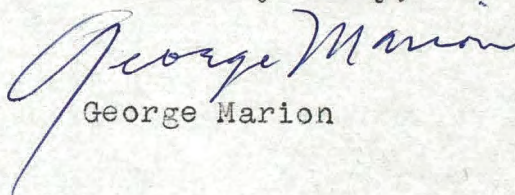 George Marion
George Marion